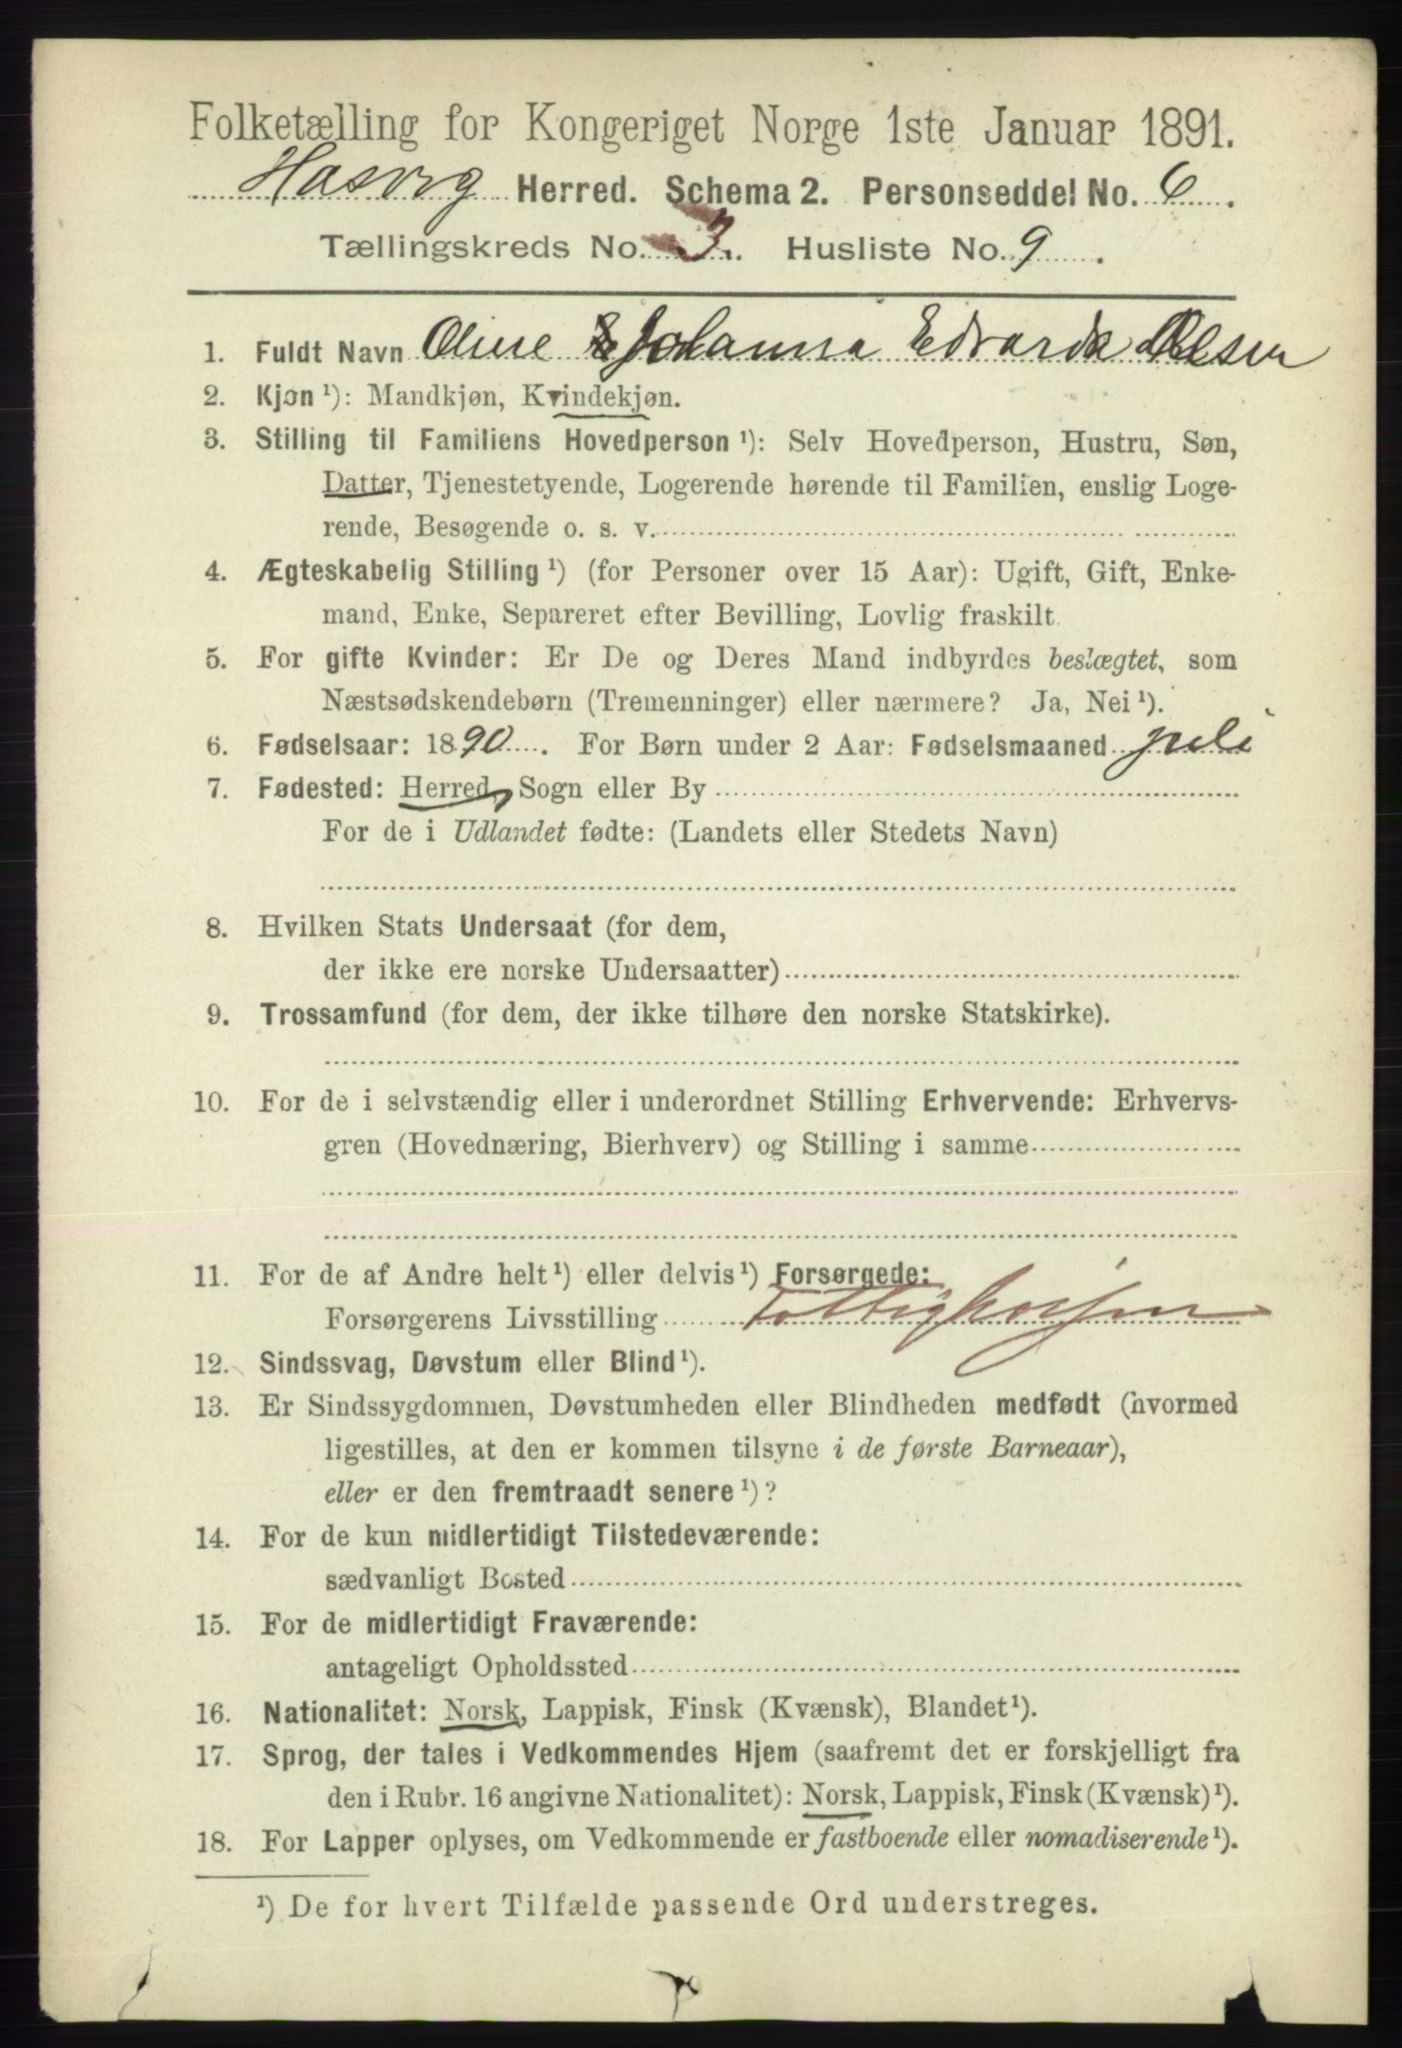 Folketælling for Kongeriget Norge 1ste Januar 1891.
Hasvig Herred. Schema 2. Personseddel No. 6.
Tællingskreds No. 3. Husliste No. 9.
1. Fuldt Navn Oline Johanna Edvarda Olsen
2. Kjøn ¹): Mandkjøn, Kvindekjøn.
3. Stilling til Familiens Hovedperson ¹): Selv Hovedperson, Hustru, Søn,
Datter, Tjenestetyende, Logerende hørende til Familien, enslig Loge-
rende, Besøgende o. s. v.
4. Ægteskabelig Stilling ¹) (for Personer over 15 Aar): Ugift, Gift, Enke-
mand, Enke, Separeret efter Bevilling, Lovlig fraskilt.
5. For gifte Kvinder: Er De og Deres Mand indbyrdes beslægtet, som
Næstsødskendebørn (Tremenninger) eller nærmere? Ja, Nei ¹).
6. Fødselsaar: 1890. For Børn under 2 Aar: Fødselsmaaned juli
7. Fødested: Herred, Sogn eller By
For de i Udlandet fødte: (Landets eller Stedets Navn)
8. Hvilken Stats Undersaat (for dem,
der ikke ere norske Undersaatter)
9. Trossamfund (for dem, der ikke tilhøre den norske Statskirke).
10. For de i selvstændig eller i underordnet Stilling Erhvervende: Erhvervs-
gren (Hovednæring, Bierhverv) og Stilling i samme
11. For de af Andre helt ¹) eller delvis ¹) Forsørgede:
Forsørgerens Livsstilling
12. Sindssvag, Døvstum eller Blind ¹).
13. Er Sindssygdommen, Døvstumheden eller Blindheden medfødt (hvormed
ligestilles, at den er kommen tilsyne i de første Barneaar),
eller er den fremtraadt senere ¹)?
14. For de kun midlertidigt Tilstedeværende:
sædvanligt Bosted
15. For de midlertidigt Fraværende:
antageligt Opholdssted
16. Nationalitet: Norsk, Lappisk, Finsk (Kvænsk), Blandet ¹).
17. Sprog, der tales i Vedkommendes Hjem (saafremt det er forskjelligt fra
den i Rubr. 16 angivne Nationalitet): Norsk, Lappisk, Finsk (Kvænsk) ¹).
18. For Lapper oplyses, om Vedkommende er fastboende eller nomadiserende ¹).
¹) De for hvert Tilfælde passende Ord understreges.